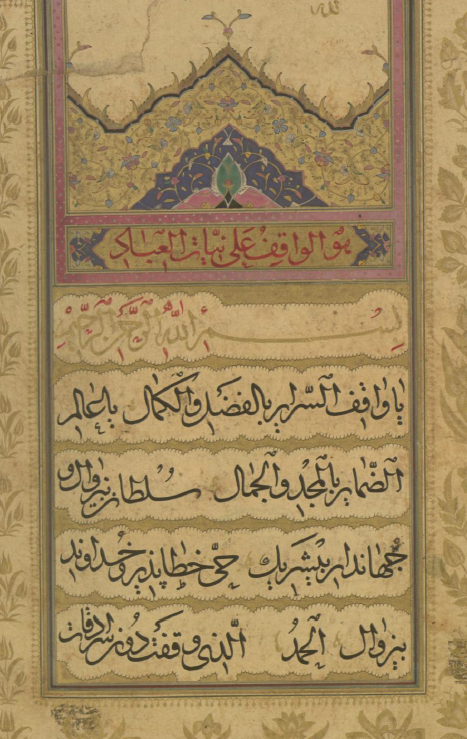 هو الواقف علی نیات العباد
بسم الله الرحمن الرحیم
یا واقف السرایر بالفضل والکمال یا عالم
الضمایر بالمجد والجمال سلطان بیزوال و
جهاندار بیشریک حی خطاپذیر و خداوند
بیزوال الحمد الذی وقفت دون سرادقات